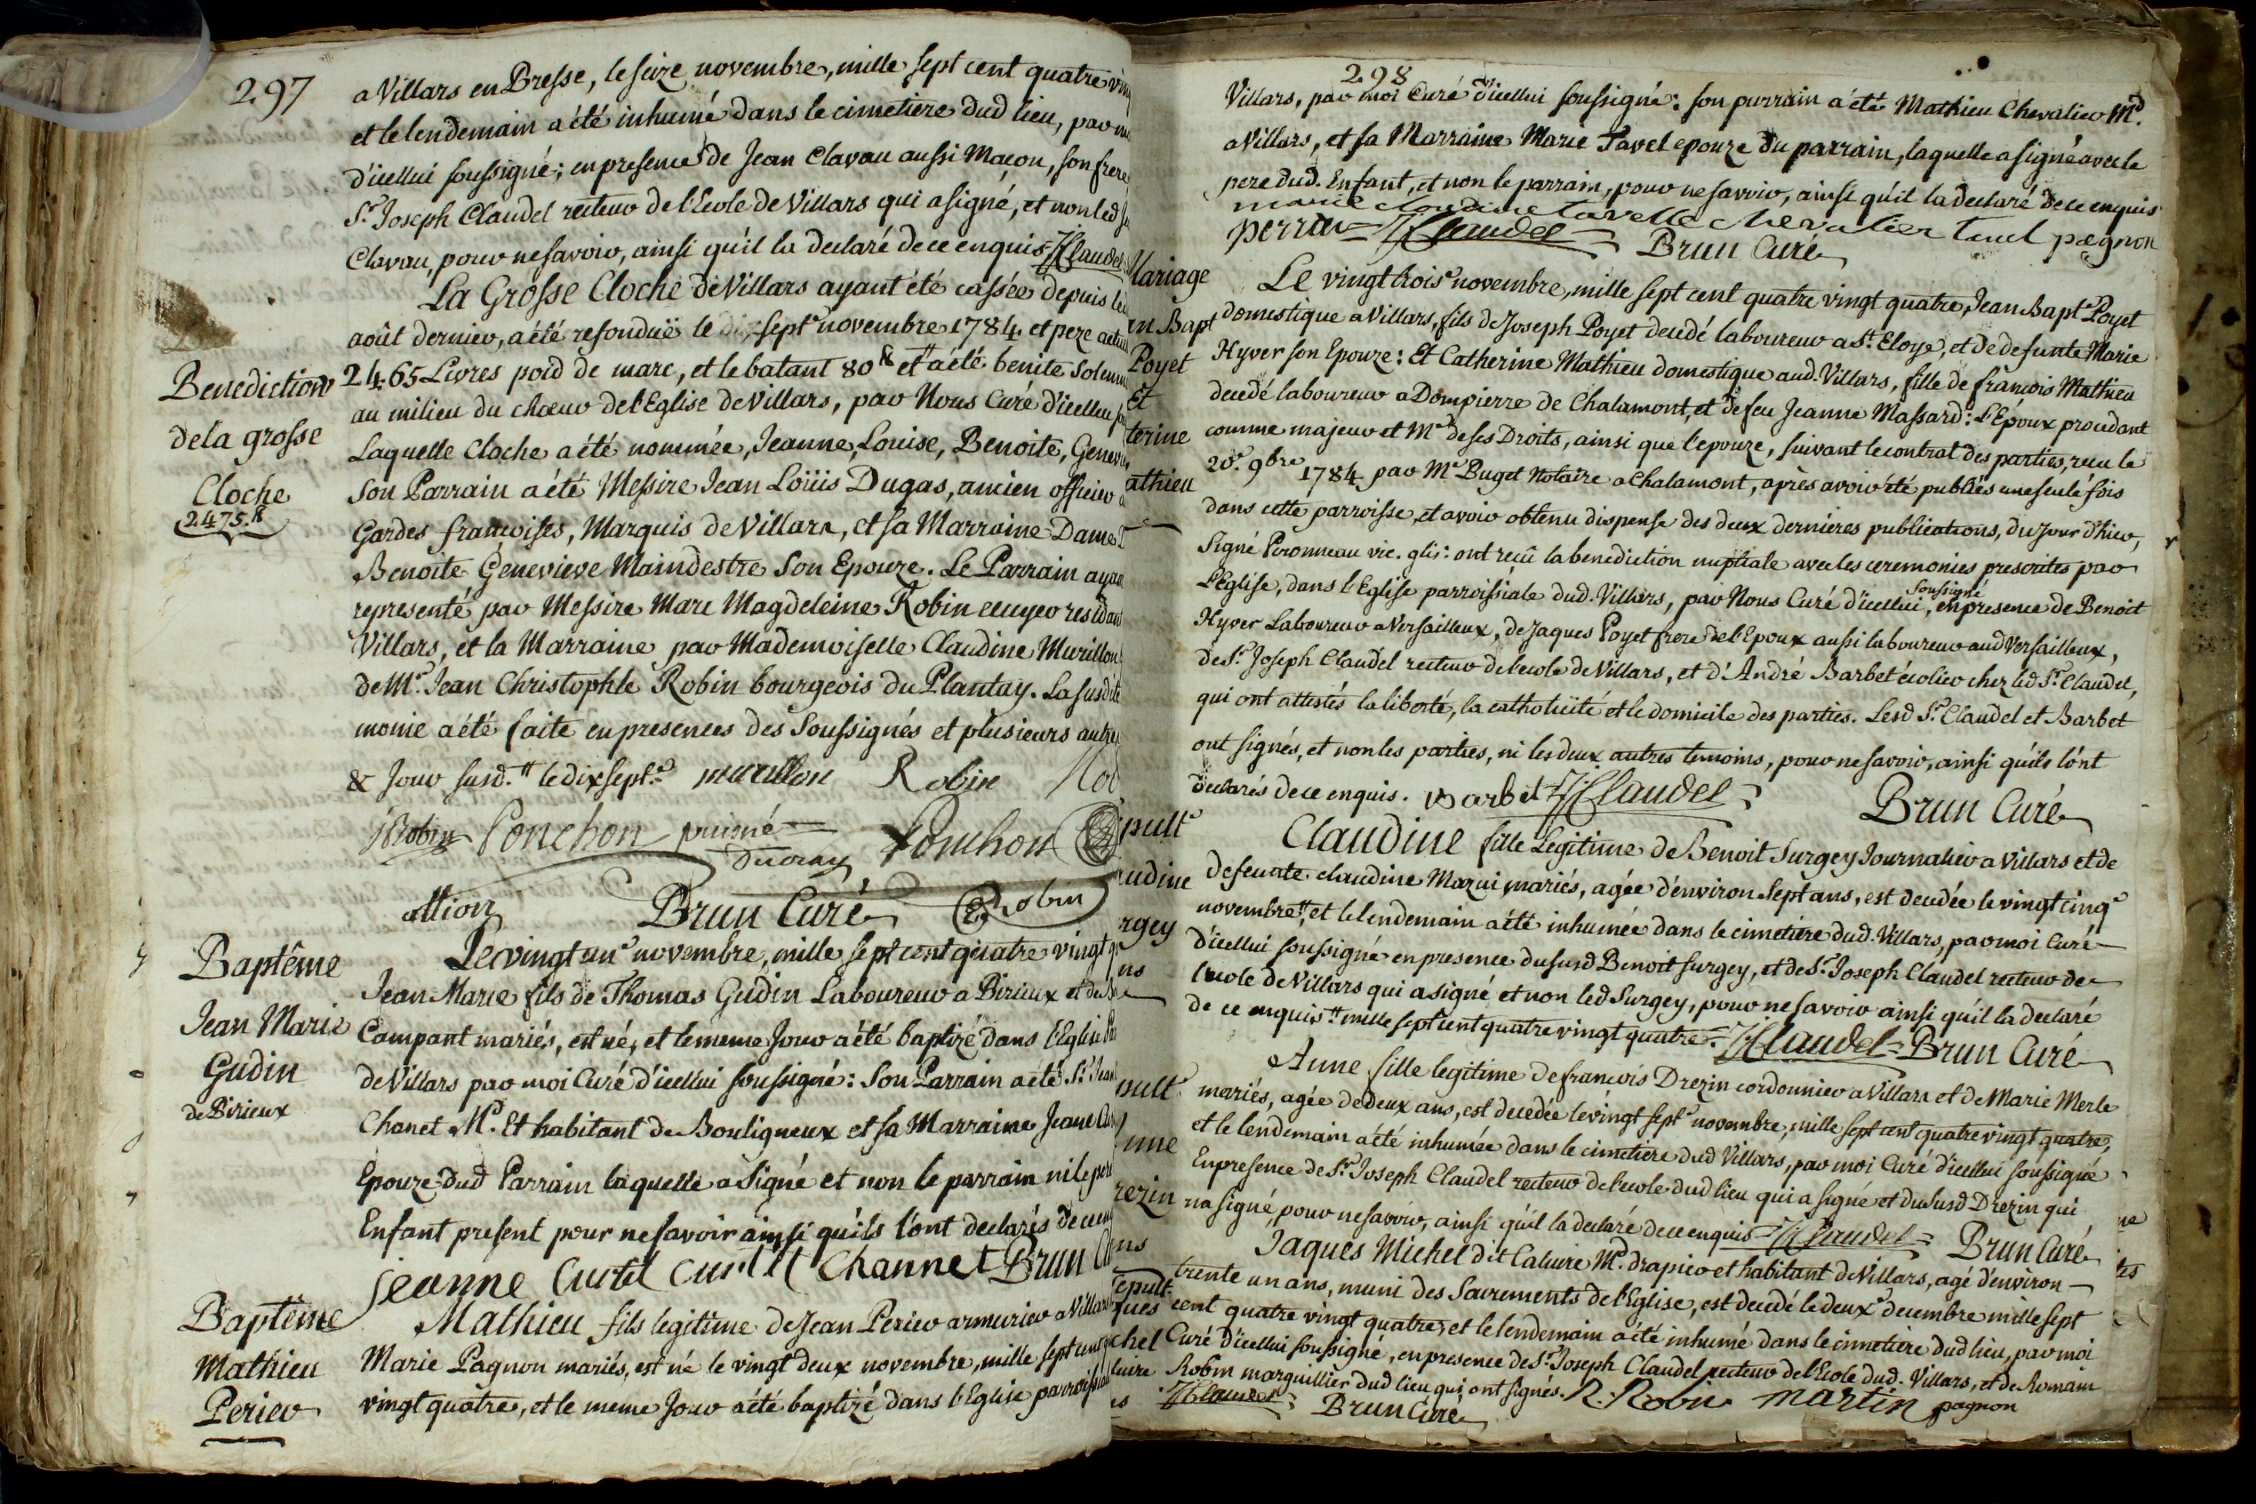 297
a Villars en Bresse, le seize novembre, mille sept cent quatre vin
et le lendemain a été inhumé dans le cimetiere dud lieu, par m
d'icellui soussigné; en presence de Jean Clavau aussi Macon, son frere
Sr. Joseph Claudel recteur de l'Ecole de Villars qui a signé, et non led
Clavau, pour ne savoir, ainsi qu'il la declaré de ce enquis Claudel
La Grosse Cloche de Villars ayant été cassée depuis le
août dernier, a été refonduë le dix septe novembre 1784. et peze actu
Benediction
de la grosse
Cloche
2475.
2465 Livres poid de marc, et le batant 80 et a été benite Solemn
au milieu du chœur de l'Eglise de Villars, par Nous Curé d'icellui
Laquelle Cloche a été nommée, Jeanne, Louise, Benoite, Genev
Son Parrain a été Messire Jean Loüis Dugas, ancien officier
Gardes françoises, Marquis de Villars, et sa Marraine Dame
Benoite Genevieve Maindestre Son Epouze. Le Parrain ayan
representé par Messire Marc Magdeleine Robin ecuyer residant
Villars, et la Marraine par Mademoiselle Claudine Murillon
de Mr. Jean Christophle Robin bourgeois du Plantay. La susdite
monie a été faite en presences des Soussignés et plusieurs autres
& Jour susd. le dixsept.e murillon Robin
Robin Ponchon puiné ducray Ponchon
Brun Curé Robin
Baptême
Jean Marie
Gudin
de Birieux
Le vingt un.e novembre, mille sept cent quatre vingt
Jean Marie fils de Thomas Gudin Laboureur a Birieux et de
Campant mariés, est né, et le meme Jour a été baptizé dans l'Eglise
de Villars par moi Curé d'icellui soussigné: Son Parrain a été Sr. Jean
Chanet Md. Et habitant de Bouligneux et sa Marraine Jeane
Epouze dud Parrain laquelle a signé et non le parrain ni le pere
Enfant present pour ne savoir ainsi qu'ils l'ont declarés de ce en
Jeanne Curtil Channet Brun
Baptême
Mathieu
Perier
Mathieu fils legitime de Jean Perier armurier a Villars
Marie Pagnon mariés, est né le vingt deux novembre, mille sept cent
vingt quatre, et le meme Jour a été baptizé dans l'Eglise parroissial
298
Villars, par moi Curé d'icellui soussigné: son parrain a été Mathieu Chevalier Md.
a Villars, et sa Marraine Marie Tavel epouze du parrain, laquelle a signé avec le
pere dud. Enfant, et non le parrain, pour ne savoir, ainsi qu'il la declaré de ce enquis
marie claudine tavelle chevalier pagnon
perrier Claudel Brun Curé
Mariage
en Bapt
Poyet
Et
terine
athieu
Le vingt trois.e novembre, mille sept cent quatre vingt quatre, Jean Bapt.e Poyet
domestique a Villars, fils de Joseph Poyet decedé laboureur a St. Eloye, et de defunte Marie
Hyver son Epouze: Et Catherine Mathieu domestique aud. Villars, fille de francois Mathieu
decedé laboureur a Dompierre de Chalamont, et de feu Jeanne Massard: L'Epoux procedant
comme majeur et Me. de ses Droits, ainsi que l'epouze, suivant le contrat des parties, recu le
20e. 9bre 1784 par Me Buget Notaire a Chalamont, après avoir été publiés une seule fois
dans cette parroisse, et avoir obtenu dispense des deux dernieres publications, du Jour d'hier,
Signé Peronneau vic. gl: ont recû la benediction nuptiale avec les ceremonies prescrites par
L'Eglise, dans l'Eglise parroissiale dud. Villars, par Nous Curé d'icellui, Soussigné en presence de Benoit
Hyver Laboureur a Versailleux, de Jaques Poyet frere de l'Epoux aussi laboureur aud Versailleux,
de Sr. Joseph Claudel recteur de l'ecole de Villars, et d'André Barbet écolier chez led Sr. Claudel,
qui ont attestés la liberté, la catholicité et le domicile des parties. Lesd Sr. Claudel et Barbet
ont signés, et non les parties, ni les deux autres temoins, pour ne savoir, ainsi qu'ils l'ont
declarés de ce enquis. Barbet Claudel Brun Curé
pult.e
udine
rgey
ns
Claudine fille Legitime de Benoit Surgey Journalier a Villars et de
defeunte claudine Mazui mariés, agée d'environ sept ans, est decedée le vingt cinq.e
novembre, et le lendemain a été inhumée dans le cimetiere dud. Villars, par moi Curé
d'icellui soussigné en presence du susd Benoit surgey, et de Sr. Joseph Claudel recteur de
l'ecole de Villars qui a signé et non led Surgey, pour ne savoir ainsi qu'il la declaré
de ce enquis mille sept cent quatre vingt quatre. Claudel Brun Curé
pult.
nne
rezin
ns
Anne fille legitime de francois Drezin cordonnier a Villars et de Marie Merle
mariés, agée de deux ans, est decedée le vingt sept.e novembre, mille sept cent quatre vingt quatre,
et le lendemain a été inhumée dans le cimetiere dud Villars, par moi Curé d'icellui soussigné
En presence de Sr. Joseph Claudel recteur de l'ecole dud lieu qui a signé et du susd Drezin qui
na signé, pour ne savoir, ainsi qu'il la declaré de ce enquis Claudel Brun Curé
epult.
ques
chel
luire
ns
Jaques Michel dit Caluire Md. drapier et habitant de Villars, agé d'environ
trente un ans, muni des Sacrements de l'Eglise, est decedé le deux.e decembre mille sept
cent quatre vingt quatre, et le lendemain a été inhumé dans le cimetiere dud lieu, par moi
Curé d'icellui soussigné, en presence de Sr. Joseph Claudel recteur de l'Ecole dud. Villars, et de Romain
Robin marguillier dud lieu qui ont signés. R. Robin martin pagnon
Claudel Brun Curé